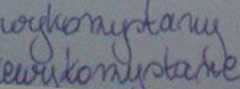 wykorzystany
ewykorzystane